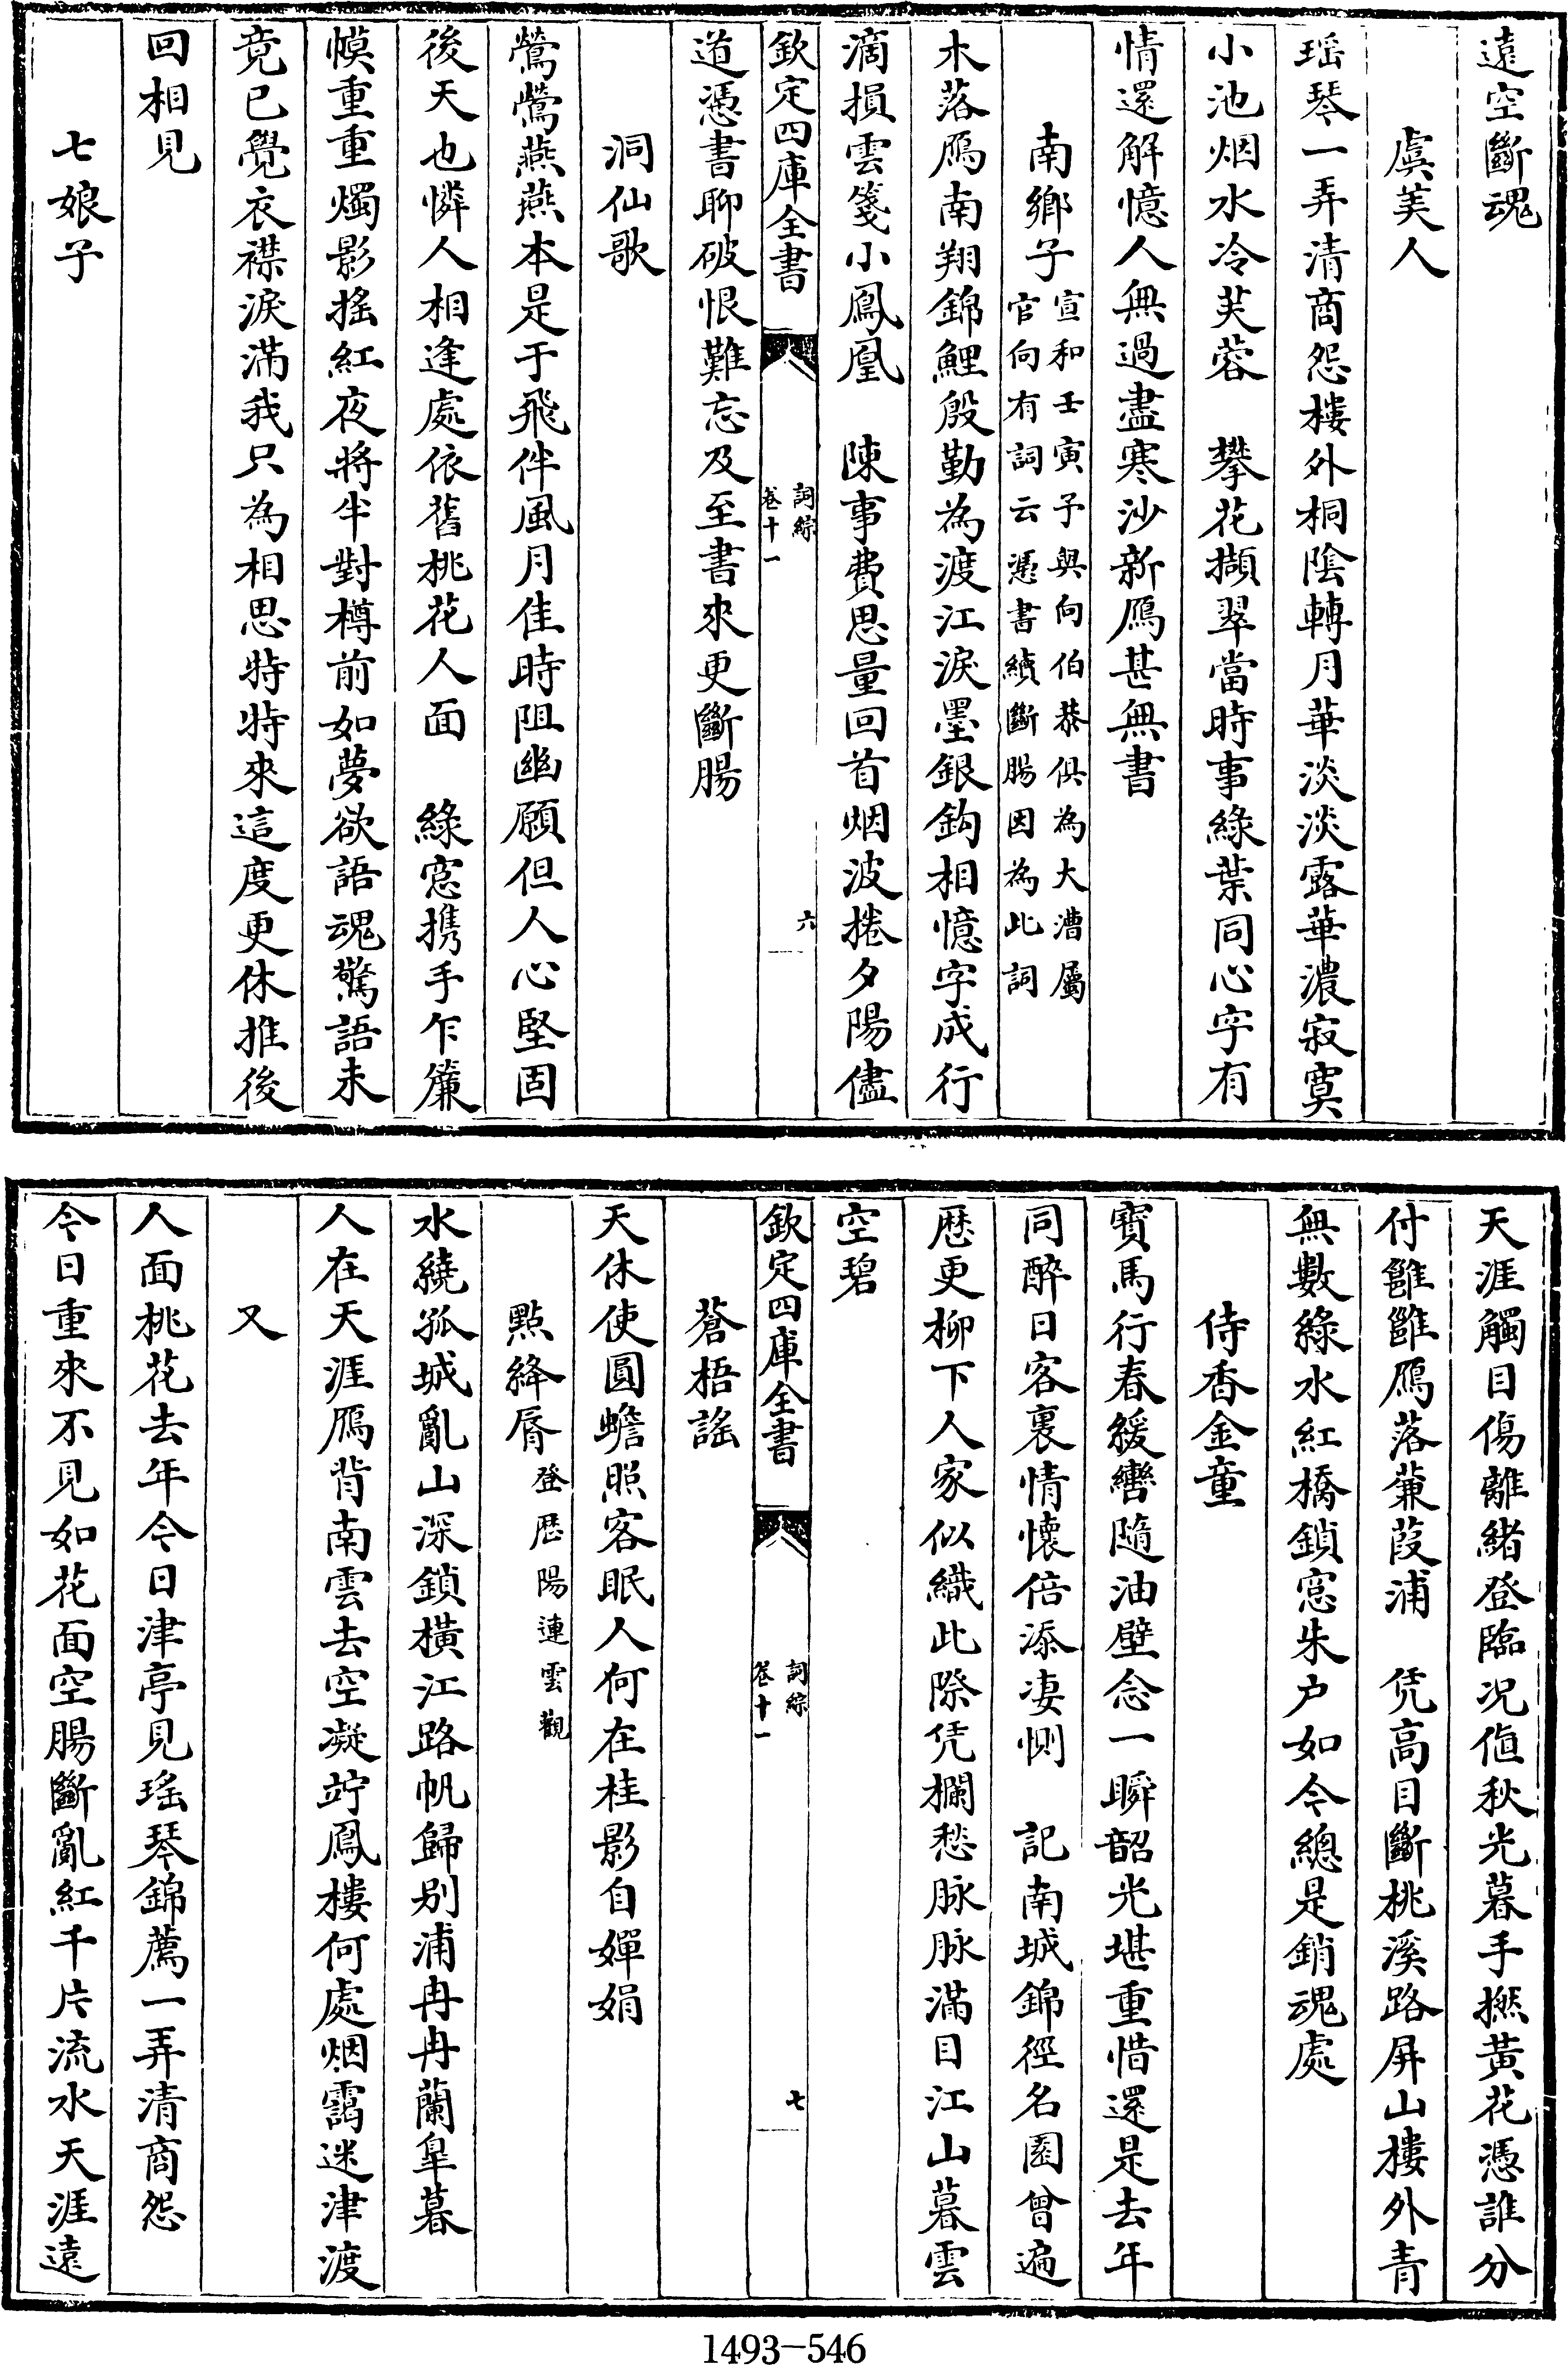 遠空斷魂
虞美人
瑶琴一弄清商怨樓外桐陰轉月華淡淡露華濃寂寞
小池烟水冷芙蓉　攀花擷翠當時事綠葉同心字有
情還解憶人無過盡寒沙新鴈甚無書
南鄉子宣和壬寅予與向伯恭俱為大漕屬
官向有詞云憑書續斷腸因為此詞
木落鴈南翔錦鯉殷勤為渡江淚墨銀鈎相憶字成行
滴損雲箋小鳳凰　陳事費思量回首烟波捲夕陽儘
欽定四庫全書
詞綜
卷十一
六
道憑書聊破恨難忘及至書來更斷腸
洞仙歌
鶯鶯燕燕本是于飛伴風月佳時阻幽願但人心堅固
後天也憐人相逢處依舊桃花人面　綠窓携手乍簾
幙重重燭影搖紅夜將半對樽前如夢欲語魂驚語未
竟已覺衣襟淚滿我只為相思特特來這度更休推後
回相見
七娘子
天涯觸目傷離緒登臨况値秋光暮手撚黃花憑誰分
付雝雝鴈落蒹葭浦　凭高目斷桃溪路屏山樓外青
無數綠水紅橋鎖窓朱户如今總是銷魂處
侍香金童
寶馬行春緩轡隨油壁念一瞬韶光堪重惜還是去年
同醉日客裏情懷倍添凄惻　記南城錦徑名園曾遍
歴更柳下人家似織此際凭欄愁脉脉滿目江山暮雲
空碧
欽定四庫全書
詞綜
卷十一
七
蒼梧謡
天休使圓蟾照客眠人何在桂影自嬋娟
點絳脣登歴陽連雲觀
水繞孤城亂山深鎖橫江路帆歸别浦冉冉蘭臯暮
人在天涯鴈背南雲去空凝竚鳳樓何處烟靄迷津渡
又
人面桃花去年今日津亭見瑶琴錦薦一弄清商怨
今日重來不見如花面空腸斷亂紅千片流水天涯遠
1493-546